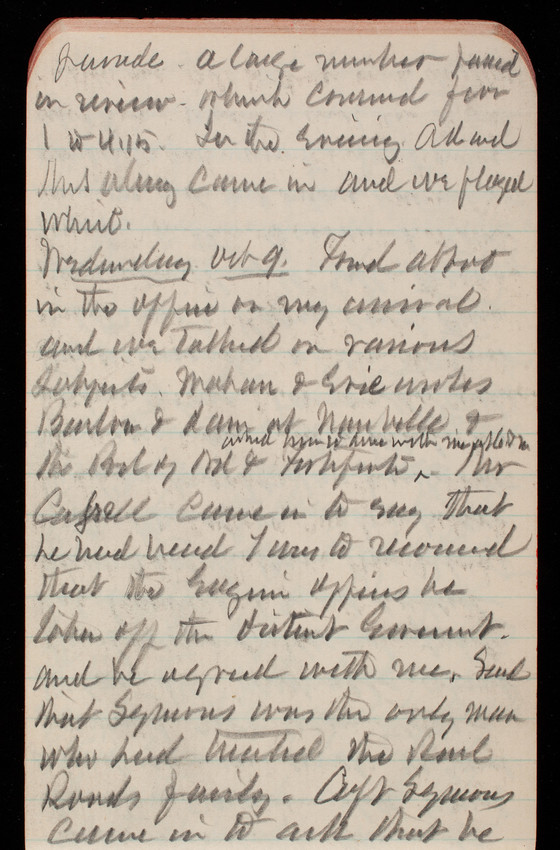 parade. A large number passed
in review. which consumed from
1 to 4.15. In the Evening A and
Mrs came in and we played
whist.
Wednesday Oct 9. Found Abbot
in the office on my arrival.
and we talked on various
subjects. Mahan &
Barlow & dam at Nashville &
asked him to dine with me
the Bd of Ord & Fortificatn ^ Mr
came in to say that
he had heard I was to recommend
that the Engineer officers be
taken off the District Government.
and he agreed with me. Said
that Symons was the only man
who had treated the Rail
Roads fairly. Capt Symons
came in to ask that he